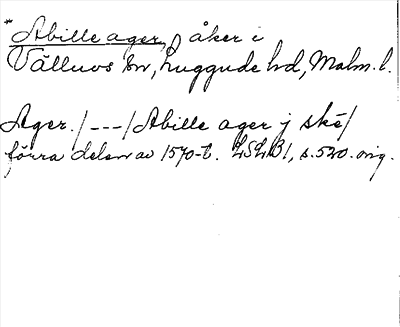 * Abille ager, åker i
Välluvs sn, Luggude hd, Malm. l.
Ager. / --- / Abille ager j skē /
förra delen av 1570-t. LSLB1, s. 520. orig.